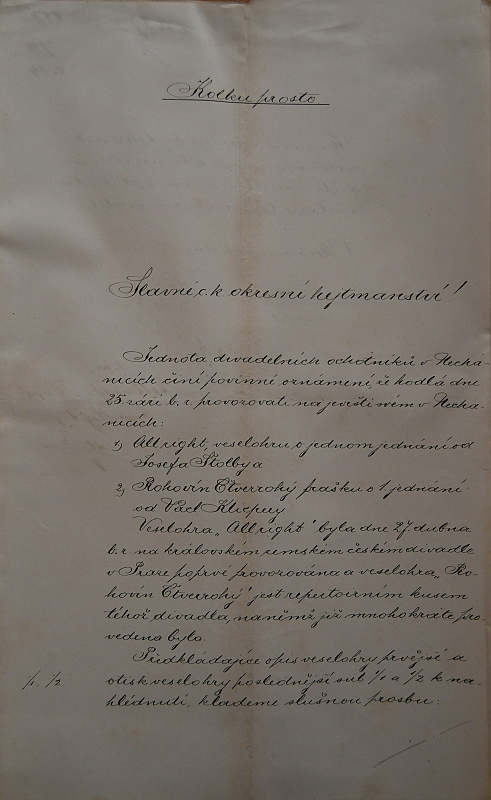 Kolku prosto
Slavné c. k. okresní hejtmanství!
Jednota divadelních ochotníků v Nechá-
nicích činí povinné oznámení, že hodlá dne
25. září b. r. provozovati na jevišti svém v Necha-
nicích:
1) All right, veselohru o jednom jednání od
Josefa Štolby a
2, Rohovín Čtverrohý frašku o 1 jednání
od Václ. Klicpery.
Veselohra „All right" byla dne 27. dubna
b. r. na královském zemském českém divadle
v Praze poprvé provozována a veselohra „Ro-
hovín Čtverrohý" jest repertoirním kusem
téhož divadla, na němž již mnohokráte pro-
vedena byla.
Předkládajíce opis veselohry prvější a
otisk veselohry poslednější sub 1/1 a 1/2 k na-
/1. 1/2.
hlédnutí, klademe slušnou prosbu: